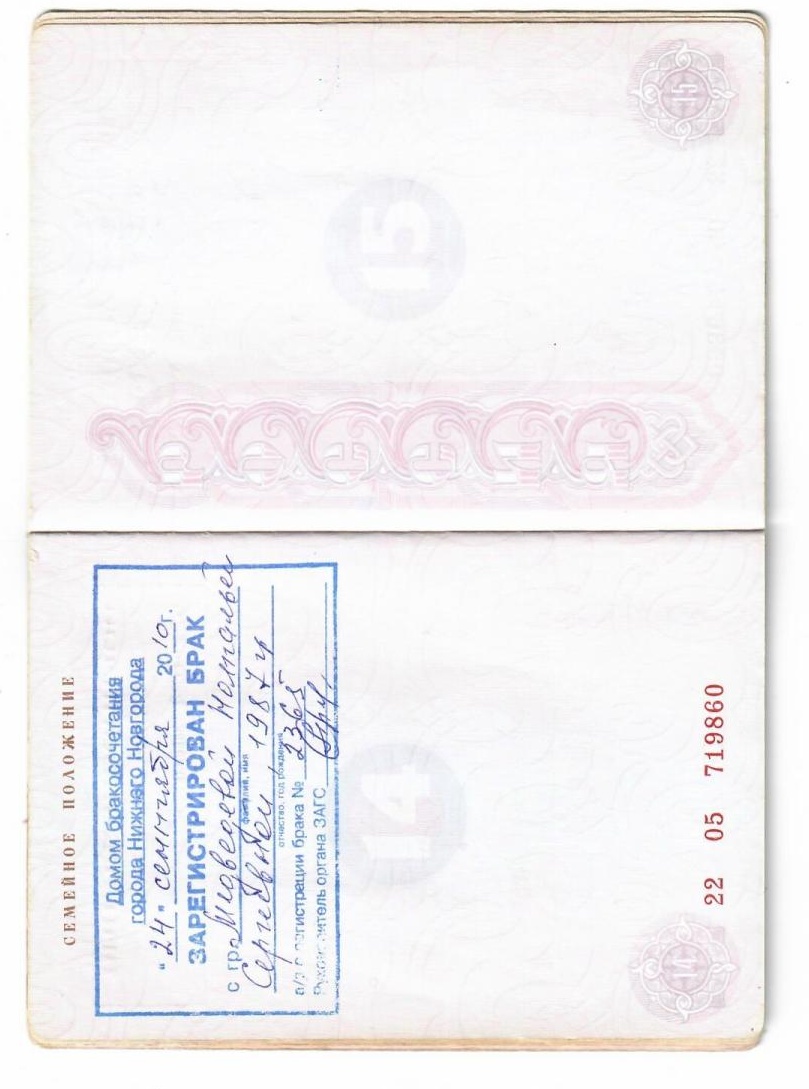 СЕМЕЙНОЕ ПОЛОЖЕНИЕ
Домом бракосочетания
города Нижнего Новгорода
"24" сентября 2010г.
ЗАРЕГИСТРИРОВАН БРАК
с гр. Медведевой Натальей
фамилия, имя
Сергеевной, 1987 г
отчество, год рождения
а/з о регистрации брака № 2365
Руководитель органа ЗАГС
14
14
22 05 719860
15
15
РОССИЯ